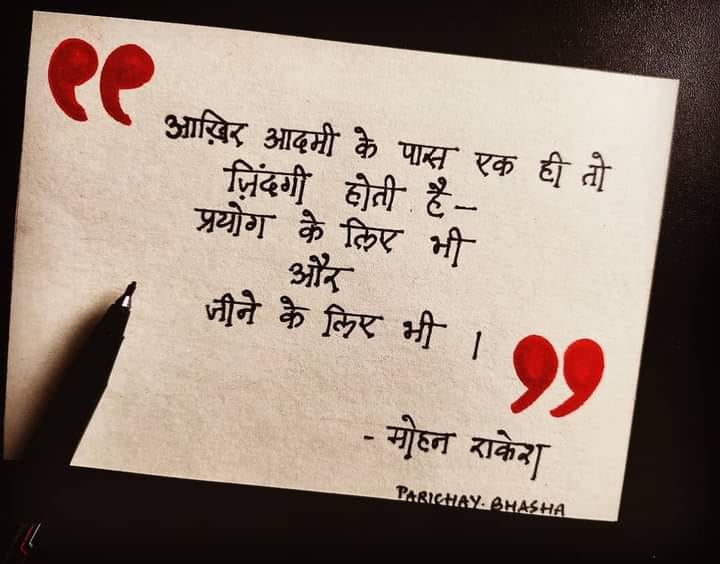 आख़िर आदमी के पास एक ही तो
ज़िंदगी होती है–
प्रयोग के लिए भी
और
जीने के लिए भी ।
- मोहन राकेश
PARICHAY. BHASHA